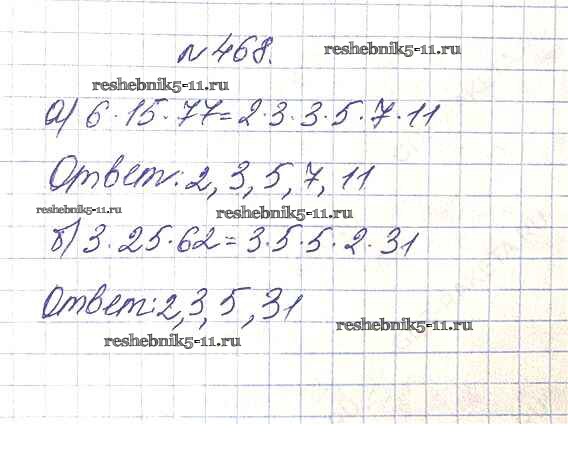 № 468.
reshebnik5-11.ru
reshebnik5-11.ru
а) 6·15·77=2·3·3·5·7·11
Ответ: 2, 3, 5, 7, 11
reshebnik5-11.ru
reshebnik5-11.ru
б) 3·25·62=3·5·5·2·31
Ответ: 2, 3, 5, 31
reshebnik5-11.ru
reshebnik5-11.ru